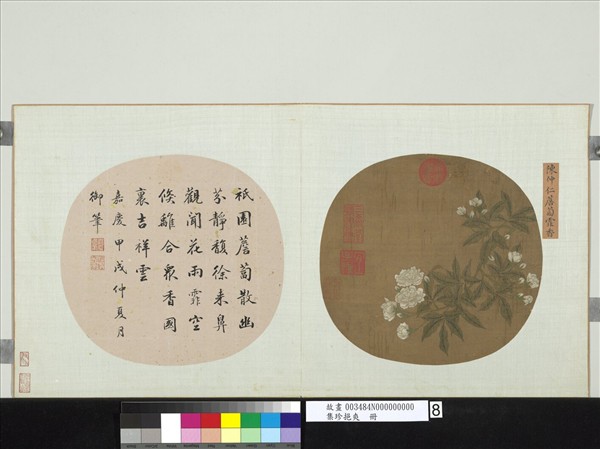 陳仲仁薝蔔霏香
祇園薝蔔散幽
芬靜馥徐来鼻
觀聞花雨霏空
倐離合衆香國
裏吉祥雲
嘉慶甲戌仲夏月
御筆
故畫 003484N000000000
集珍挹爽 冊
8